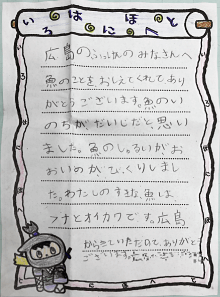 いろはにほへと
広島の
のみなさんへ
魚のことをおしえてくれてあり
がとうございます。魚のい
のちがだいじだと、思い
ました。魚のしゅるいがお
おいのがびっくりしまし
た。わたしのすきな、魚は
フナとオイカワです。広島
からきていただたので、ありがと
ございます